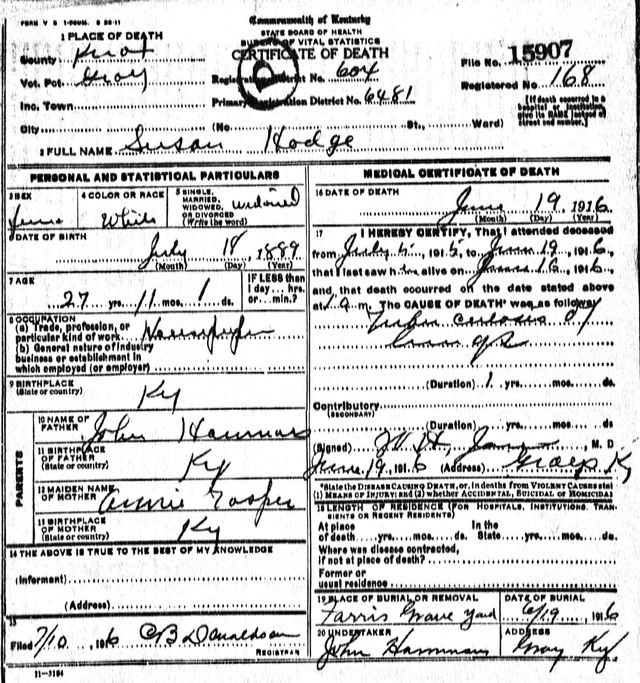 FORM V S 1-500M. 8 26-11
Commonwealth of Kentucky
STATE BOARD OF HEALTH
BUREAU OF VITAL STATISTICS
CERTIFICATE OF DEATH
1 PLACE OF DEATH
County Knox
Vot. Pct. Gray
Inc. Town
City (No. St., Ward)
Registration District No. 604
Primary Registration District No. 6481
File No. 15907
Registered No. 168
[If death occurred in a hospital or institution, give its NAME instead of street and number.]
2 FULL NAME Susan Hodge
PERSONAL AND STATISTICAL PARTICULARS
3 SEX
4 COLOR OR RACE White
5 SINGLE, MARRIED, WIDOWED, OR DIVORCED (Write the word) widowed
6 DATE OF BIRTH
July 18, 1889
(Month) (Day) (Year)
7 AGE
27 yrs. 11 mos. 1 ds.
IF LESS than 1 day... hrs. or... min.?
8 OCCUPATION
(a) Trade, profession, or particular kind of work
(b) General nature of industry business or establishment in which employed (or employer)
9 BIRTHPLACE (State or country) Ky
PARENTS
10 NAME OF FATHER John
11 BIRTHPLACE OF FATHER (State or country) Ky
12 MAIDEN NAME OF MOTHER Annie
13 BIRTHPLACE OF MOTHER (State or country) Ky
14 THE ABOVE IS TRUE TO THE BEST OF MY KNOWLEDGE
(Informant)
(Address)
15
Filed 7/10, 1916 CB Donaldson
REGISTRAR
11-3184
MEDICAL CERTIFICATE OF DEATH
16 DATE OF DEATH
June 19 1916
(Month) (Day) (Year)
17 I HEREBY CERTIFY, That I attended deceased
from July 5, 1915, to June 19, 1916,
that I last saw h alive on June 16, 1916,
and that death occurred on the date stated above
at 1 a m. The CAUSE OF DEATH* was as follows:
Tuberculosis of
Lungs
(Duration) 1 yrs. mos. ds.
Contributory
(SECONDARY)
(Duration) yrs. mos. ds.
(Signed) M. D.
June 19, 1916 (Address) Grays Ky
*State the DISEASE CAUSING DEATH, or, in deaths from VIOLENT CAUSES state (1) MEANS OF INJURY; and (2) whether ACCIDENTAL, SUICIDAL or HOMICIDAL
18 LENGTH OF RESIDENCE (FOR HOSPITALS, INSTITUTIONS, TRANSIENTS OR RECENT RESIDENTS)
At place of death yrs. mos. ds. In the State yrs. mos. ds.
Where was disease contracted, if not at place of death?
Former or usual residence
19 PLACE OF BURIAL OR REMOVAL
Farris Grave yard
DATE OF BURIAL
6/19, 1916
20 UNDERTAKER
John Hammons
ADDRESS
Gray Ky